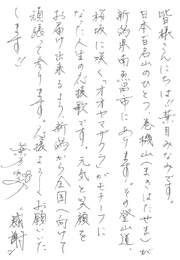 皆様こんにちは!!葉月みなみです。
日本百名山のひとつ、巻機山(まきはたやま)が
新潟県南魚沼市にあります。その登山道、
桜坂に咲く「オオヤマザクラ」がモチーフに
なった人生の応援歌です。元気と笑顔を
お届け出来るよう、新潟から全国へ向けて
頑張って参ります。応援よろしくお願いいた
します!!
"感謝"